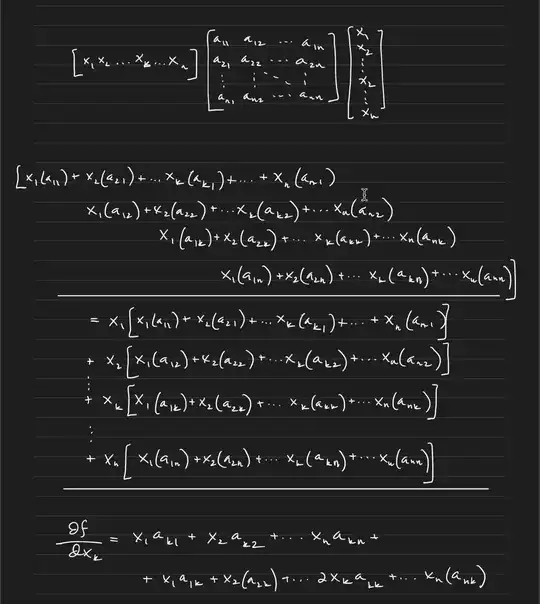 [x₁ x₂ ... x_k ... x_n] [a₁₁ a₁₂ ... a₁ₙ; a₂₁ a₂₂ ... a₂ₙ; ⋮ ⋮ ⋱ ⋮; aₙ₁ aₙ₂ ... aₙₙ] [x₁; x₂; ⋮; x₂; ⋮; xₙ]
[x₁(a₁₁) + x₂(a₂₁) + ... x_k(a_k1) + ... + x_n(a_n1)
x₁(a₁₂) + x₂(a₂₂) + ... x_k(a_k2) + ... x_n(a_n2)
x₁(a_1k) + x₂(a_2k) + ... x_k(a_kk) + ... x_n(a_nk)
x₁(a_1n) + x₂(a_2n) + ... x_k(a_kn) + ... x_n(a_nn)]
= x₁[x₁(a₁₁) + x₂(a₂₁) + ... x_k(a_k1) + ... + x_n(a_n1)]
+ x₂[x₁(a₁₂) + x₂(a₂₂) + ... x_k(a_k2) + ... x_n(a_n2)]
⋮
+ x_k[x₁(a_1k) + x₂(a_2k) + ... x_k(a_kk) + ... x_n(a_nk)]
⋮
+ x_n[x₁(a_1n) + x₂(a_2n) + ... x_k(a_kn) + ... x_n(a_nn)]
∂f/∂x_k = x₁a_k1 + x₂a_k2 + ... x_n a_kn +
+ x₁a_1k + x₂(a_2k) + ... 2x_k a_kk + ... x_n(a_nk)